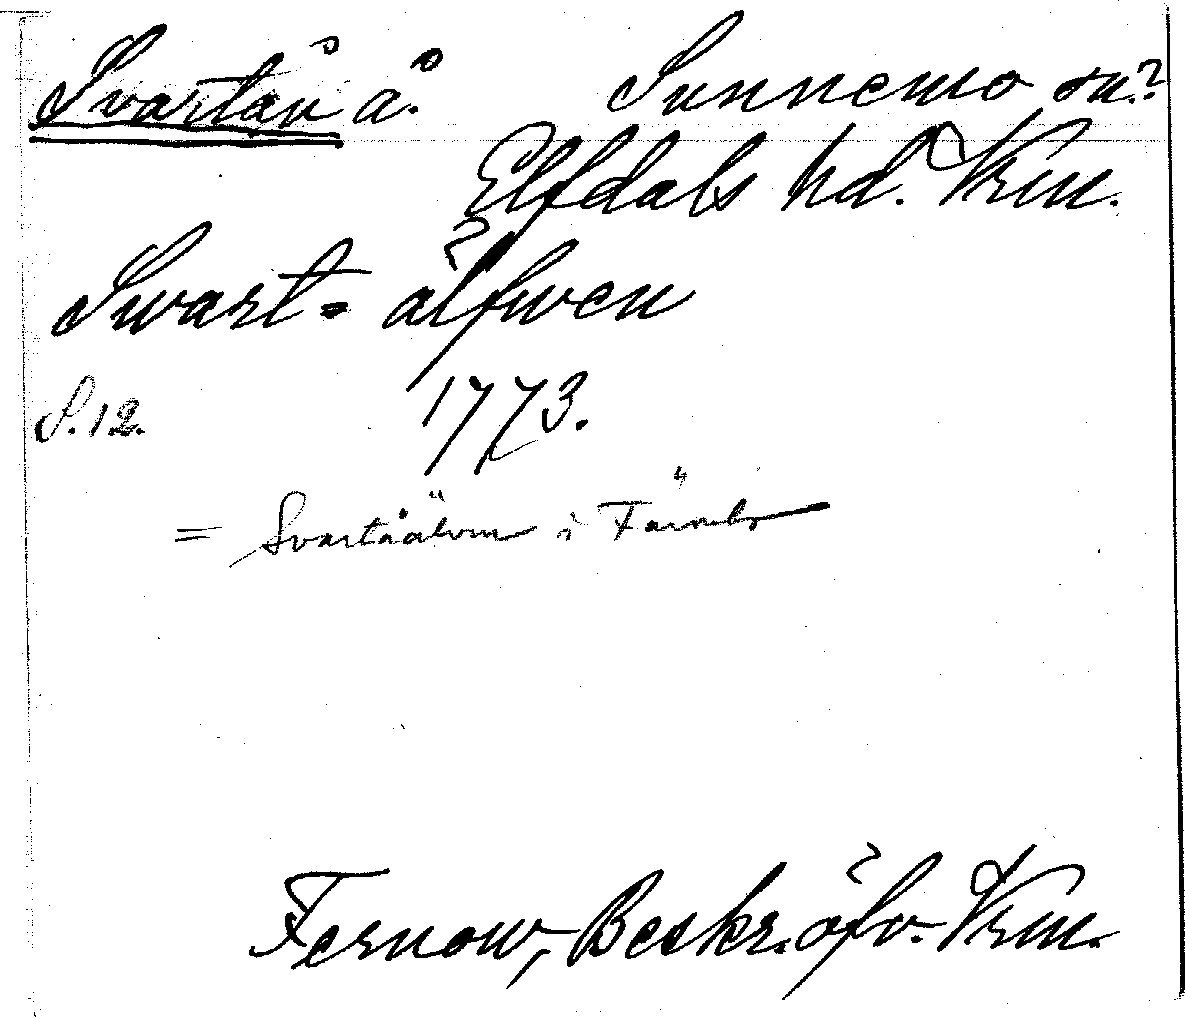 Svartån å. Sunnemo sn.?
Elfdals hd. Vrm.
Swart=älfwen
S.12. 1773.
= Svartåälven i Färnebo
Fernow, Beskr. öfv. Vrm.